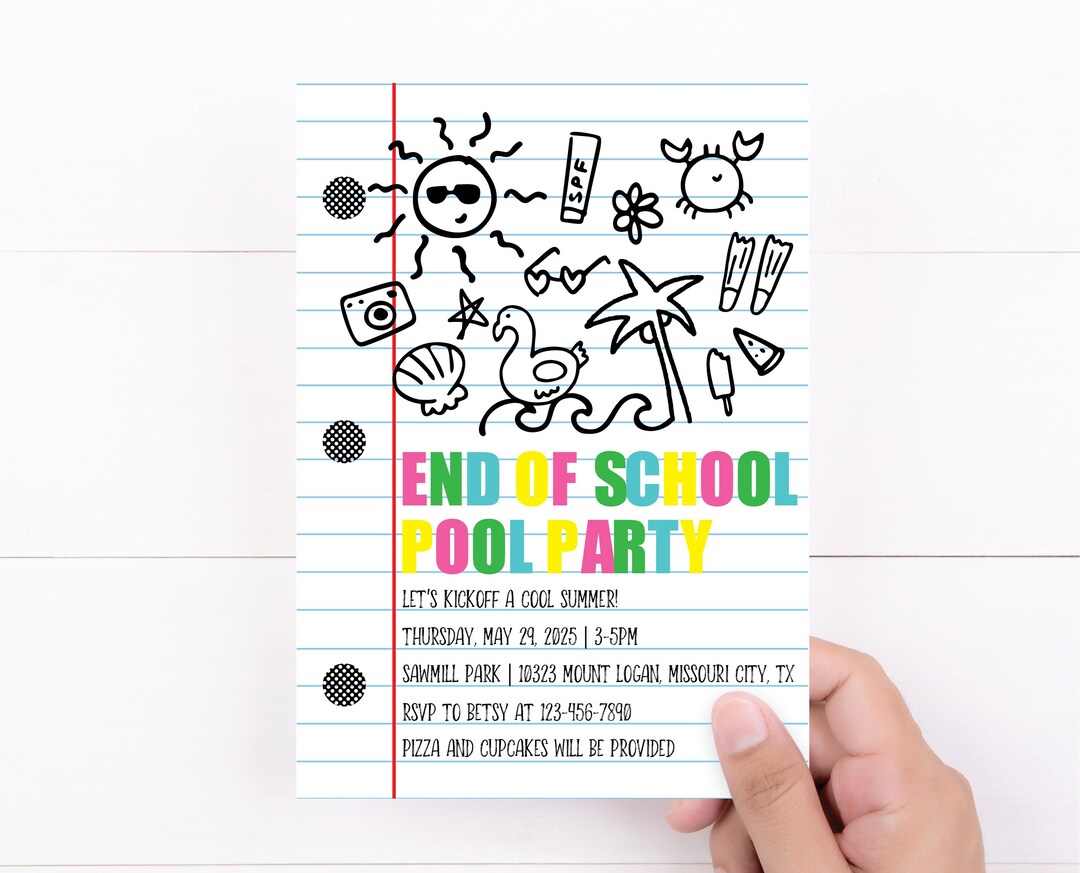 SPF
END OF SCHOOL
POOL PARTY
LET'S KICKOFF A COOL SUMMER!
THURSDAY, MAY 29, 2025 | 3-5PM
SAWMILL PARK | 10323 MOUNT LOGAN, MISSOURI CITY, TX
RSVP TO BETSY AT 123-456-7890
PIZZA AND CUPCAKES WILL BE PROVIDED